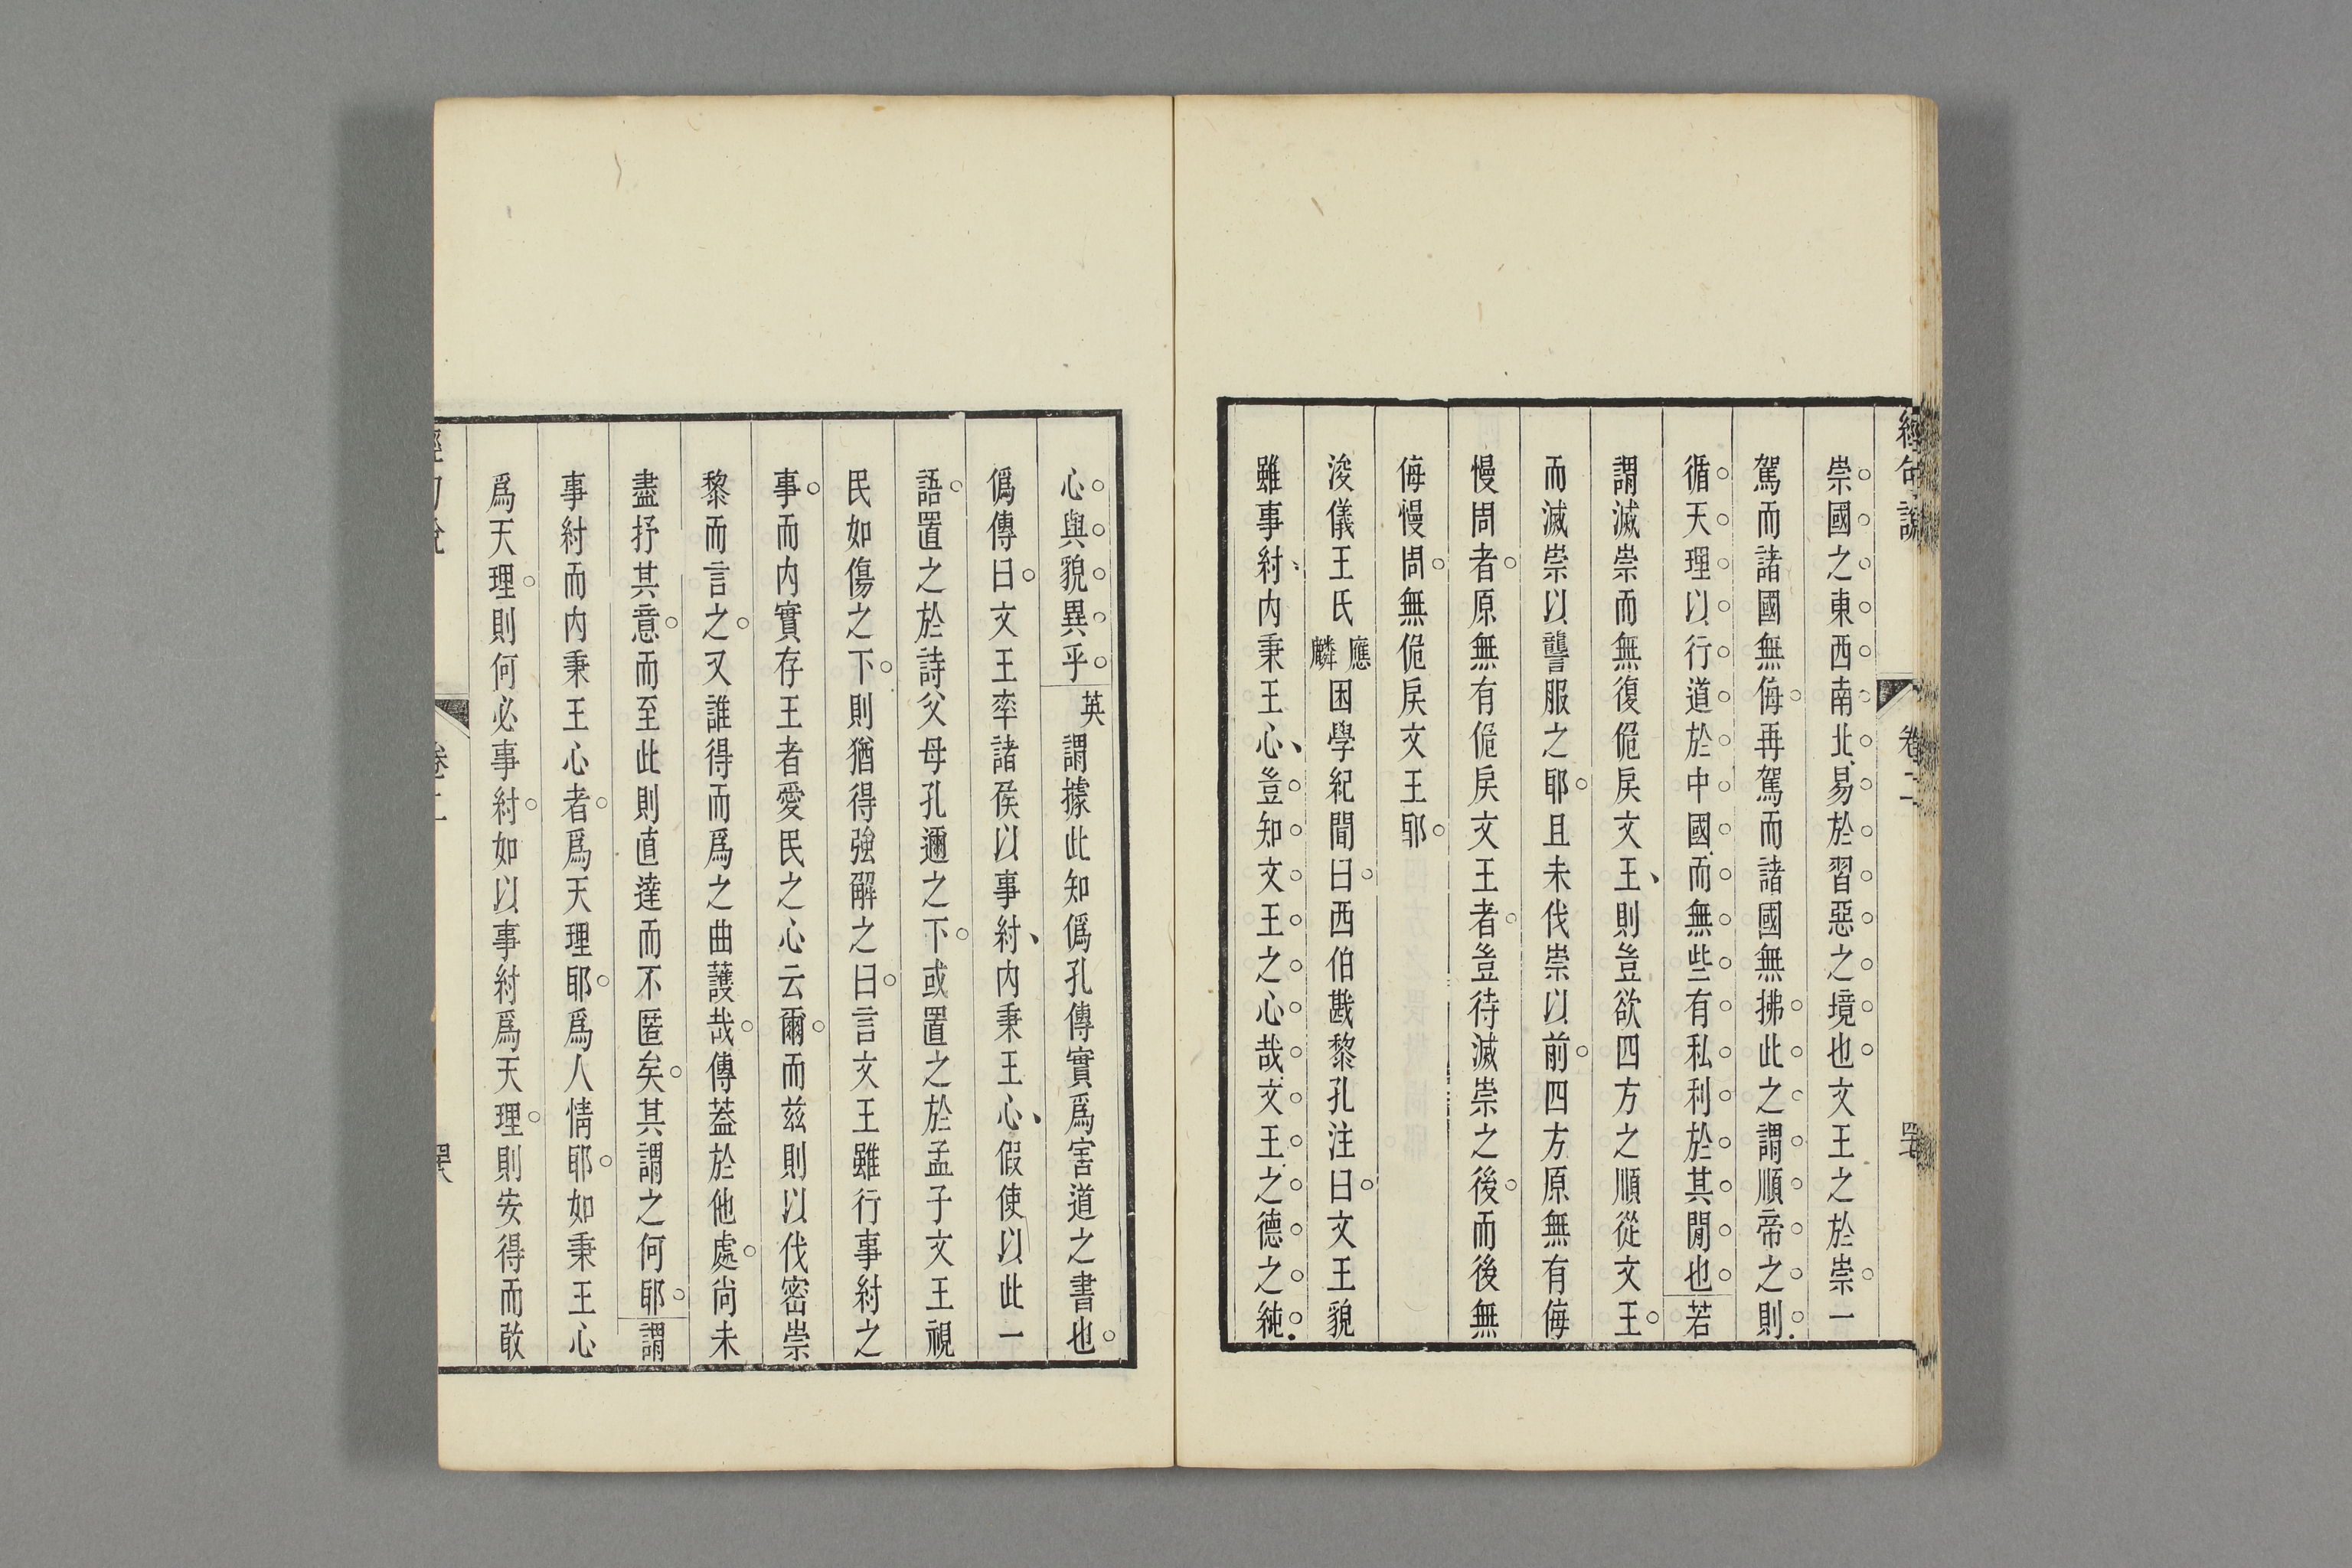 經句說 卷二
崇國之東西南北易於習惡之境也文王之於崇一
駕而諸國無侮再駕而諸國無拂此之謂順帝之則
循天理以行道於中國而無些有私利於其閒也若
謂滅崇而無復佹戾文王則豈欲四方之順從文王
而滅崇以讋服之耶且未伐崇以前四方原無有侮
慢周者原無有佹戾文王者豈待滅崇之後而後無
侮慢周無佹戾文王耶
浚儀王氏應麟困學紀聞曰西伯戡黎孔注曰文王貌
雖事紂內秉王心豈知文王之心哉文王之德之純
心與貌異乎英謂據此知僞孔傳實爲害道之書也
僞傳曰文王率諸侯以事紂內秉王心假使以此一
語置之於詩父母孔邇之下或置之於孟子文王視
民如傷之下則猶得強解之曰言文王雖行事紂之
事而內實存王者愛民之心云爾而兹則以伐密崇
黎而言之又誰得而爲之曲護哉傳葢於他處尙未
盡抒其意而至此則直達而不匿矣其謂之何耶謂
事紂而內秉王心者爲天理耶爲人情耶如秉王心
爲天理則何必事紂如以事紂爲天理則安得而敢